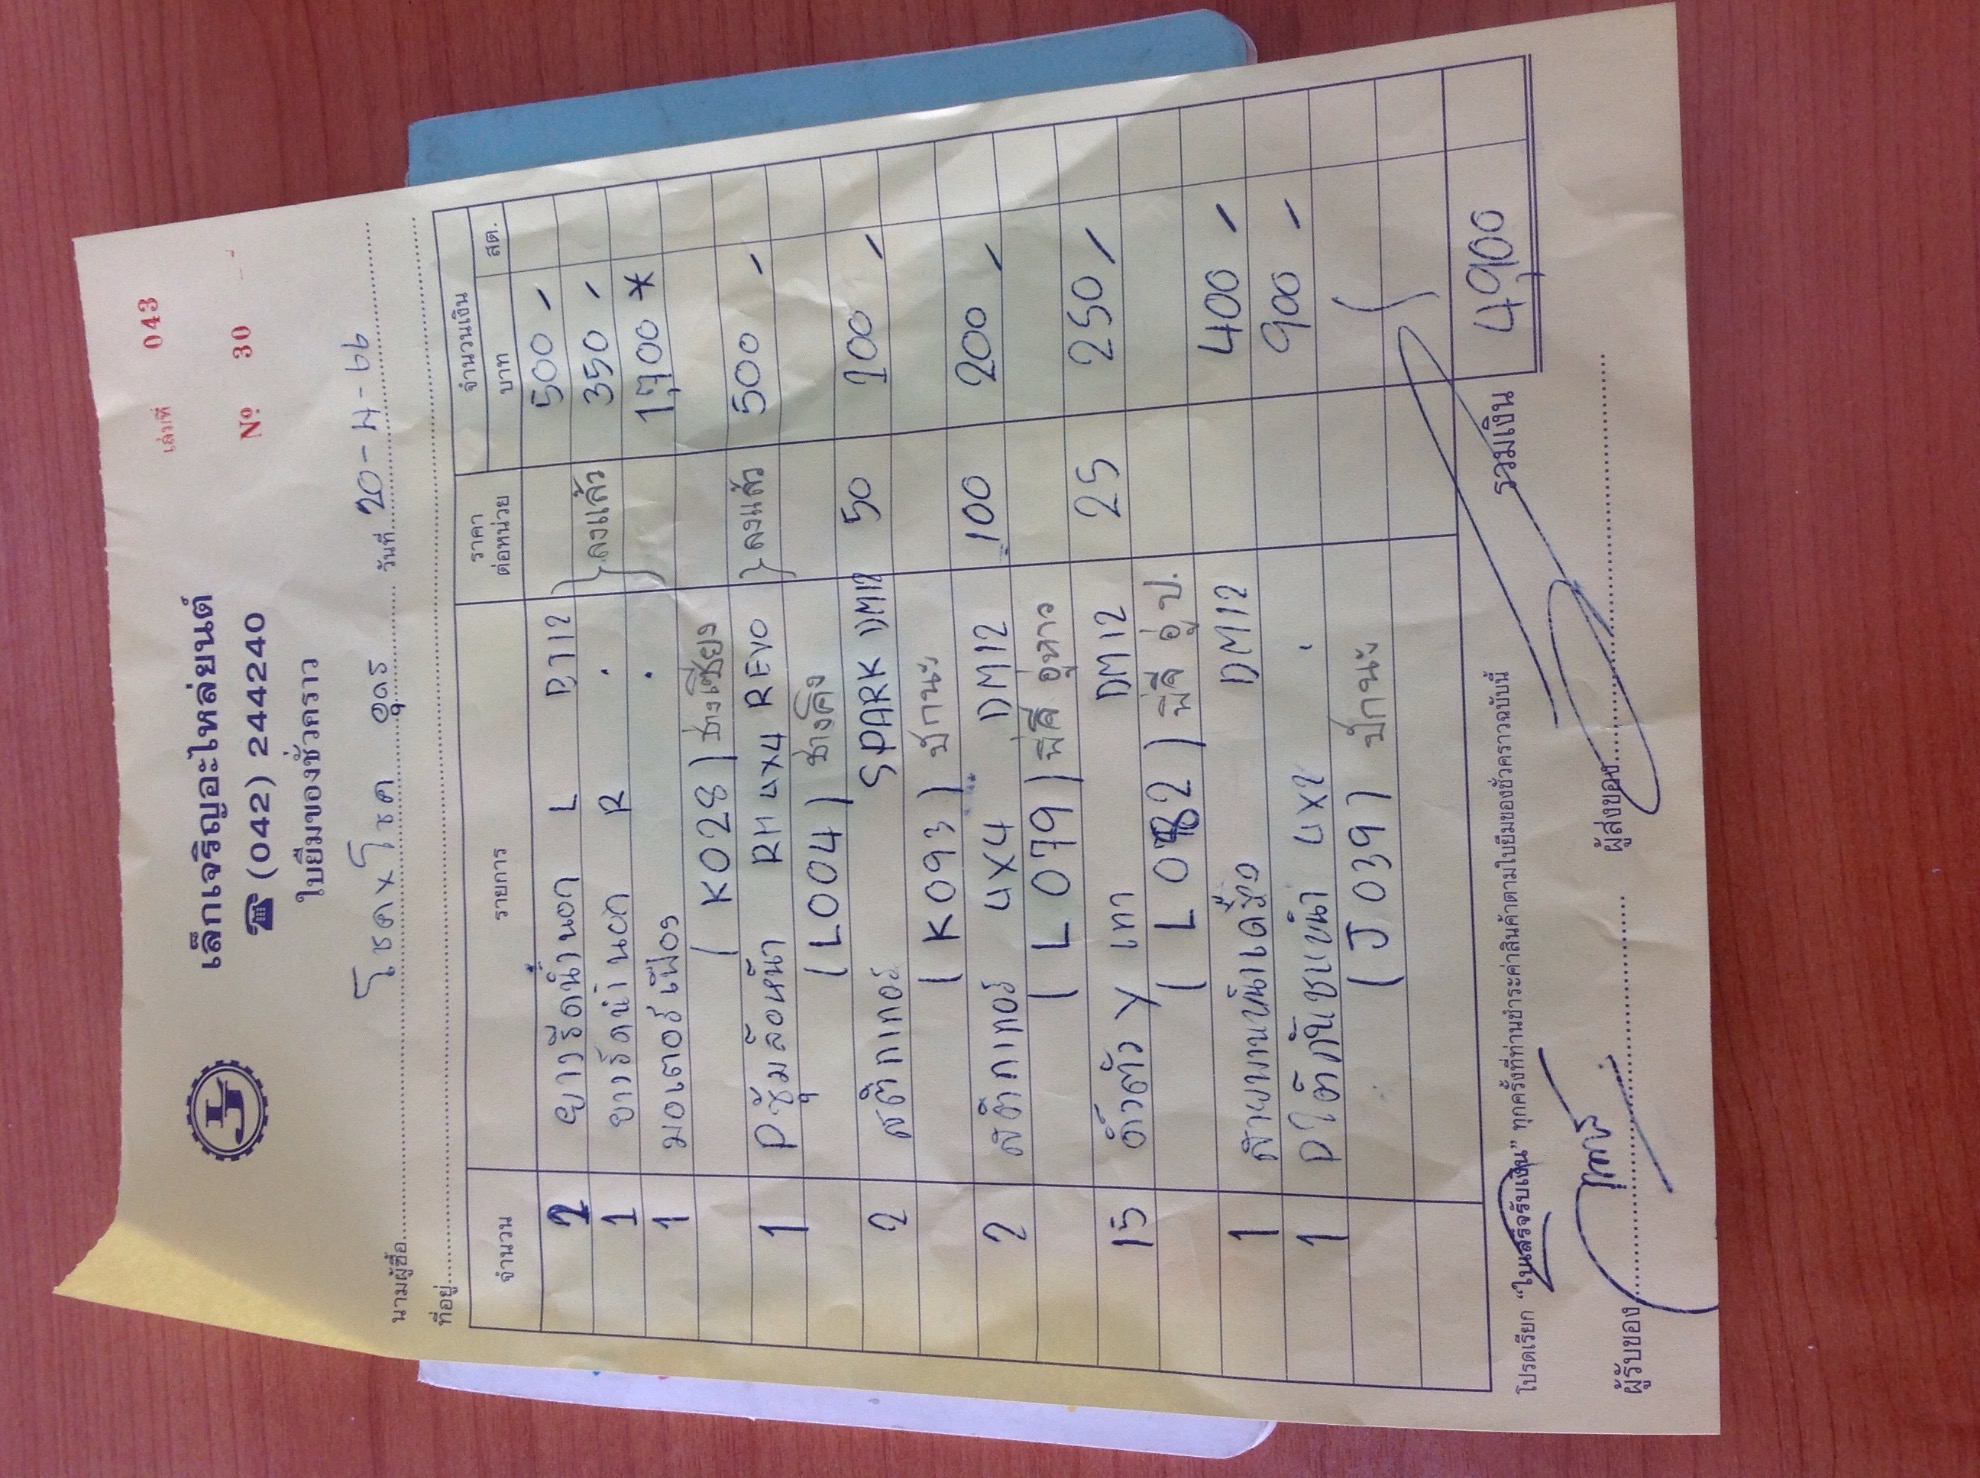 เล่มที่ 043
เล็กเจริญอะไหล่ยนต์
☎ (042) 244240
Nº 30
ใบยืมของชั่วคราว
นามผู้ซื้อ โชค x โชค อุดร วันที่ 20-4-66
ที่อยู่
จำนวน รายการ ราคาต่อหน่วย จำนวนเงิน
บาท สต.
2 ยางรีดน้ำนอก L D712 500 -
1 ยางรีดน้ำนอก R . } ลงแล้ว 350 -
1 มอเตอร์เฟือง . 1,700 *
( K028 ) ช่างเซียง
1 Pซุ้มล้อหน้า RH 4x4 REVO } ลงแล้ว 500 -
( L004 )
2 สติกเกอร์ SPARK DM12 50 100 -
( K093 ) ป้กนะ
2 สติกเกอร์ 4x4 DM12 100 200 -
( L079 )
15 ตัว Y เทา DM12 25 250 -
( L082 ) อู่ ป.
1 DM12 400 -
1 4x2 . 900 -
( J039 ) ป้กนะ
รวมเงิน 4,900
โปรดเรียก “ใบเสร็จรับเงิน” ทุกครั้งที่ท่านชำระค่าสินค้าตามใบยืมของชั่วคราวฉบับนี้
ผู้รับของ ผู้ส่งของ